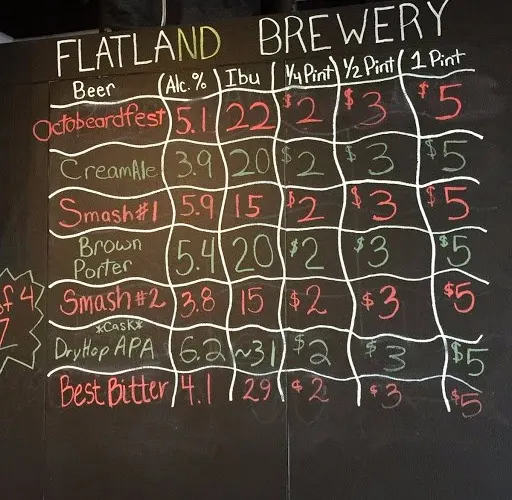 FLATLAND BREWERY
Beer Alc.% Ibu 1/4 Pint 1/2 Pint 1 Pint
Octobeardfest 5.1 22 $2 $3 $5
CreamAle 3.9 20 $2 $3 $5
Smash#1 5.9 15 $2 $3 $5
Brown
Porter 5.4 20 $2 $3 $5
Smash#2 3.8 15 $2 $3 $5
*Cask*
DryHop APA 6.2 ~31 $2 $3 $5
Best Bitter 4.1 29 $2 $3 $5
of 4